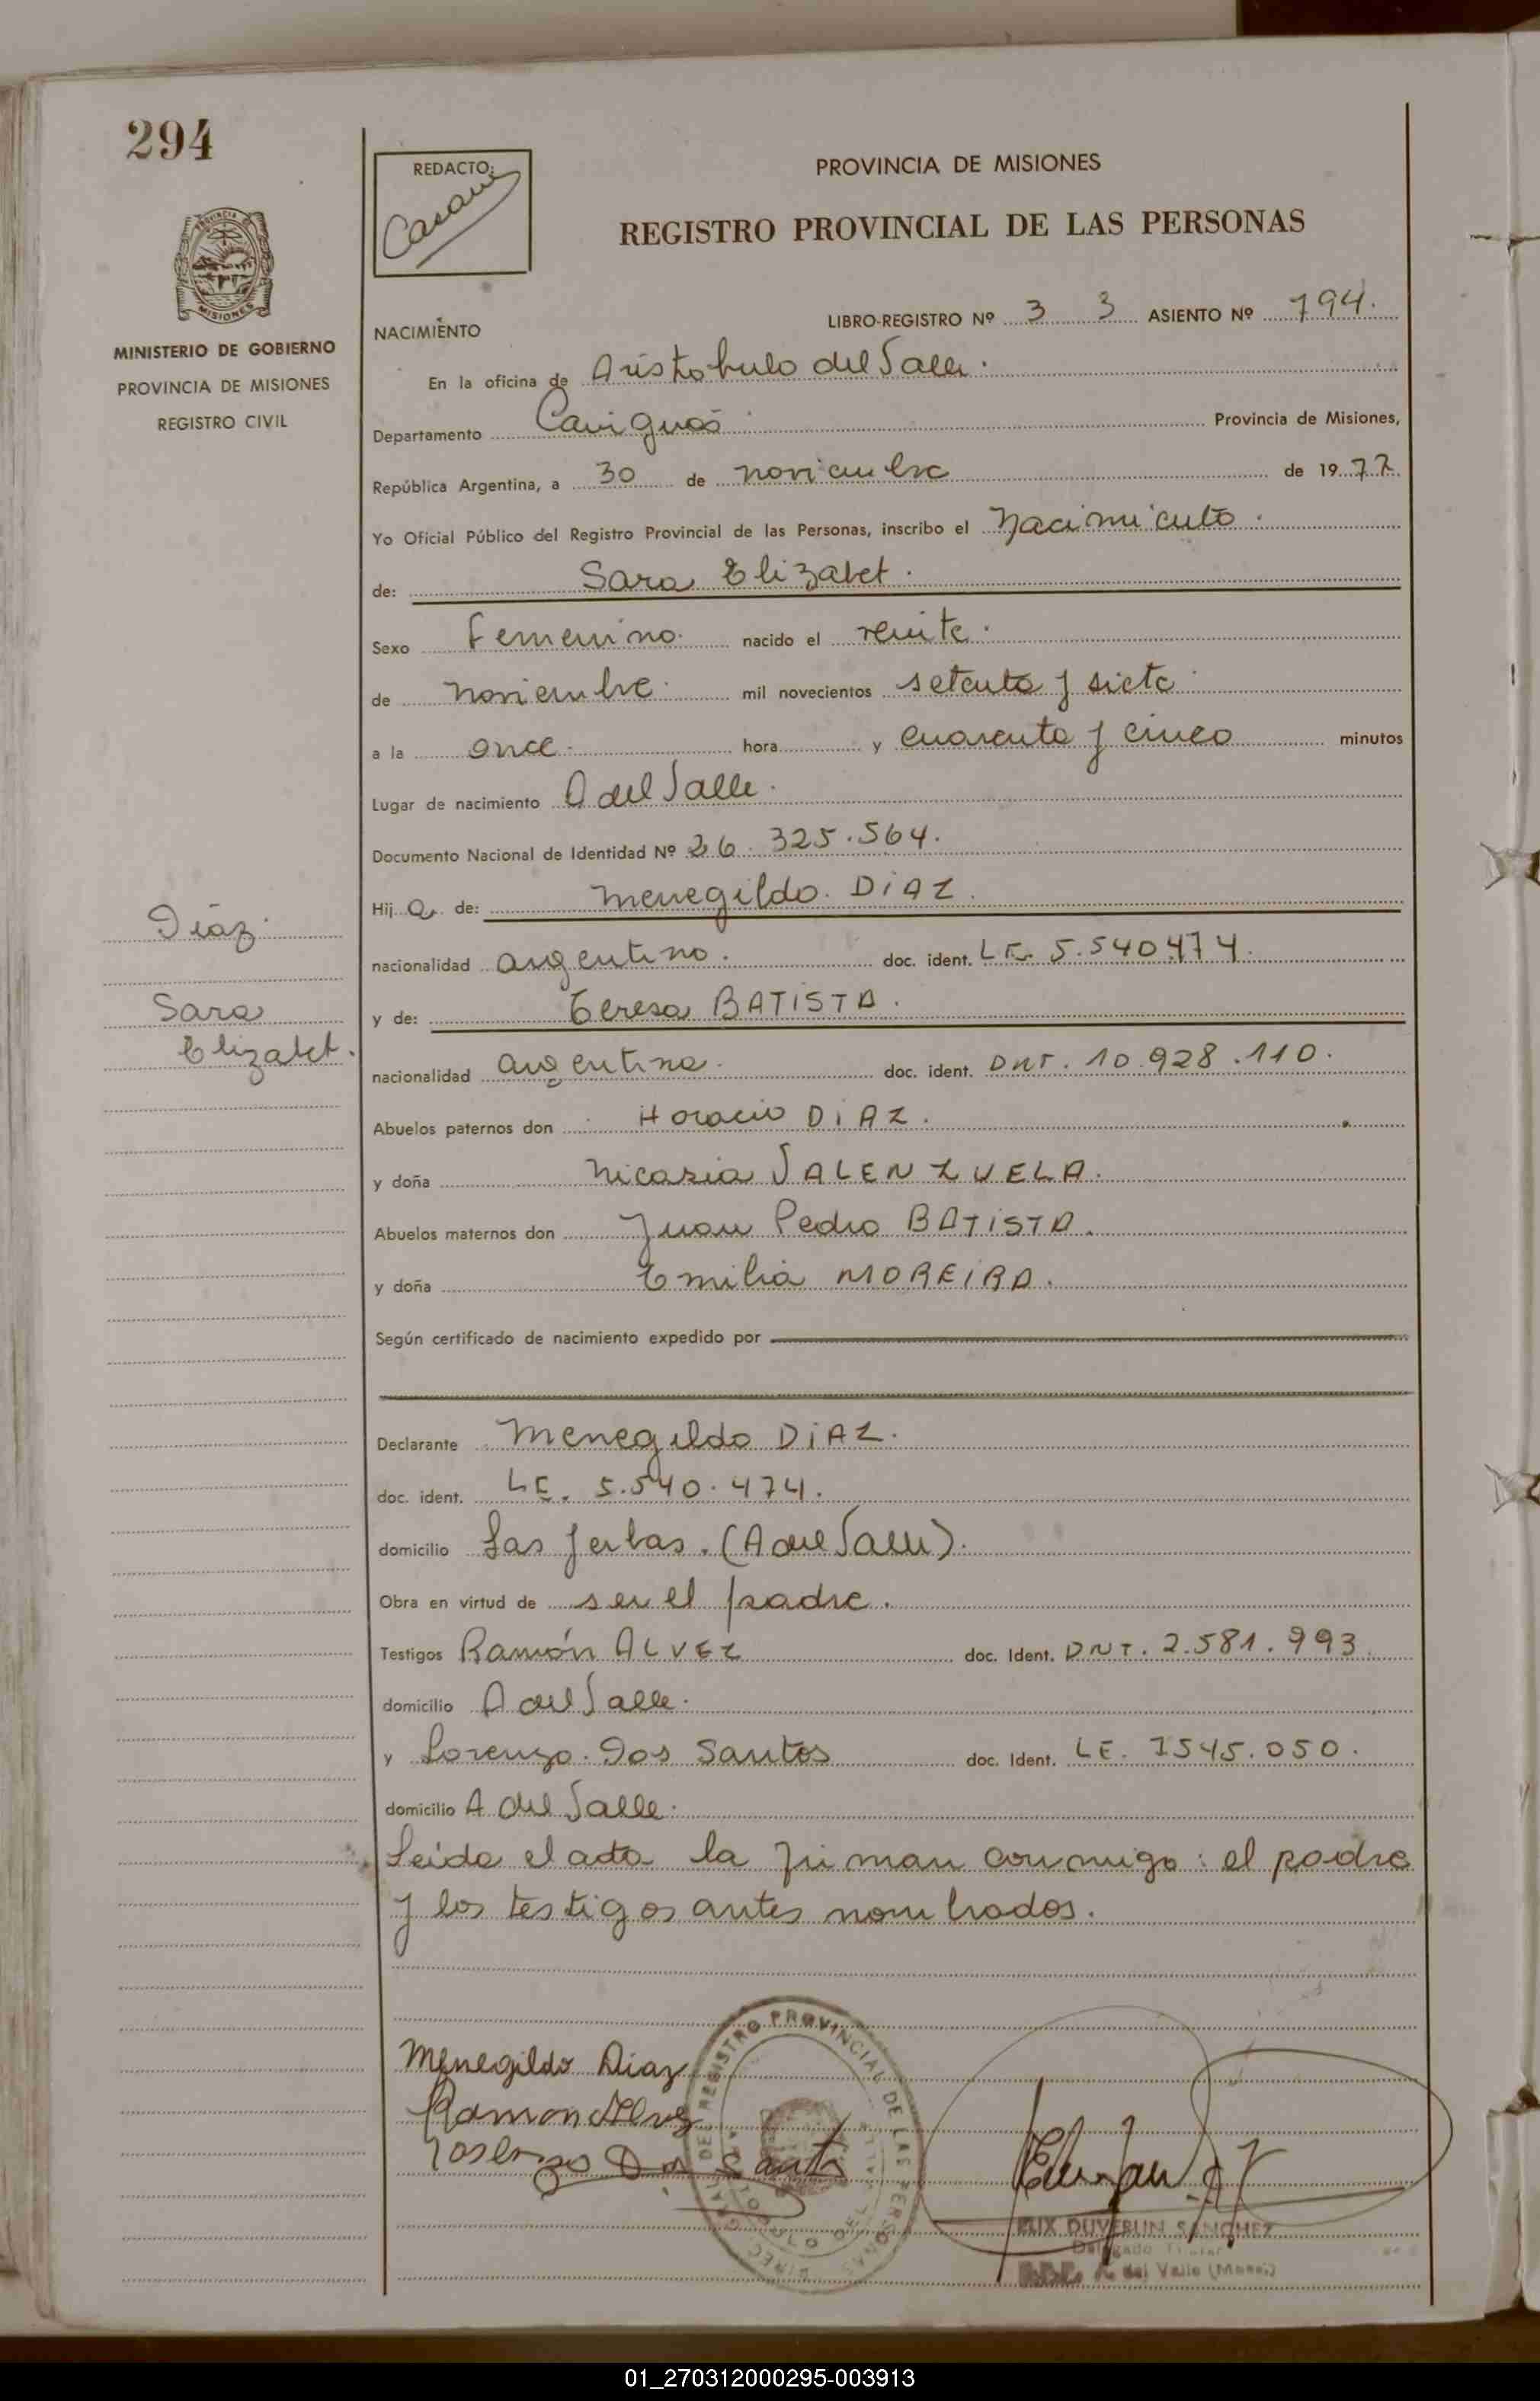 294
REDACTO:
PROVINCIA DE MISIONES
REGISTRO PROVINCIAL DE LAS PERSONAS
PROVINCIA DE
MISIONES
MINISTERIO DE GOBIERNO
PROVINCIA DE MISIONES
REGISTRO CIVIL
NACIMIENTO
LIBRO-REGISTRO Nº 3 3 ASIENTO Nº 794.
En la oficina de Aristobulo del Valle.
Departamento Cainguás Provincia de Misiones,
República Argentina, a 30 de noviembre de 1977.
Yo Oficial Público del Registro Provincial de las Personas, inscribo el Nacimiento.
de: Sara Elizabet.
Sexo femenino. nacido el veinte.
de noviembre. mil novecientos setenta y siete.
a la once. hora y cuarenta y cinco minutos
Lugar de nacimiento A del Valle.
Documento Nacional de Identidad Nº 26.325.564.
Hija de: Menegildo. DiAZ.
nacionalidad argentino. doc. ident. LE. 5.540.474.
y de: Teresa BATiSTA.
nacionalidad argentina. doc. ident. DNI. 10.928.110.
Abuelos paternos don Horacio DiAZ.
y doña Nicasia VALENZUELA.
Abuelos maternos don Juan Pedro BATiSTA.
y doña Emilia MOREiRA.
Según certificado de nacimiento expedido por
Declarante Menegildo DiAZ.
doc. ident. LE. 5.540.474.
domicilio Las Yerbas. (A del Valle).
Obra en virtud de ser el padre.
Testigos Ramón ALVEZ doc. Ident. DNI. 2.581.993
domicilio A del Valle.
y Lorenzo. Dos Santos doc. Ident. LE. 7545.050.
domicilio A del Valle.
Leida el acta la firman conmigo: el padre
y los testigos antes nombrados.
Díaz.
Sara
Elizabet.
Menegildo Diaz
Ramon Alvez
Lorenzo Dos Santos
REGISTRO PROVINCIAL DE LAS PERSONAS
DUVERLIN SANCHEZ
Delegado Titular
A. del Valle (Mnes.)
01_270312000295-003913